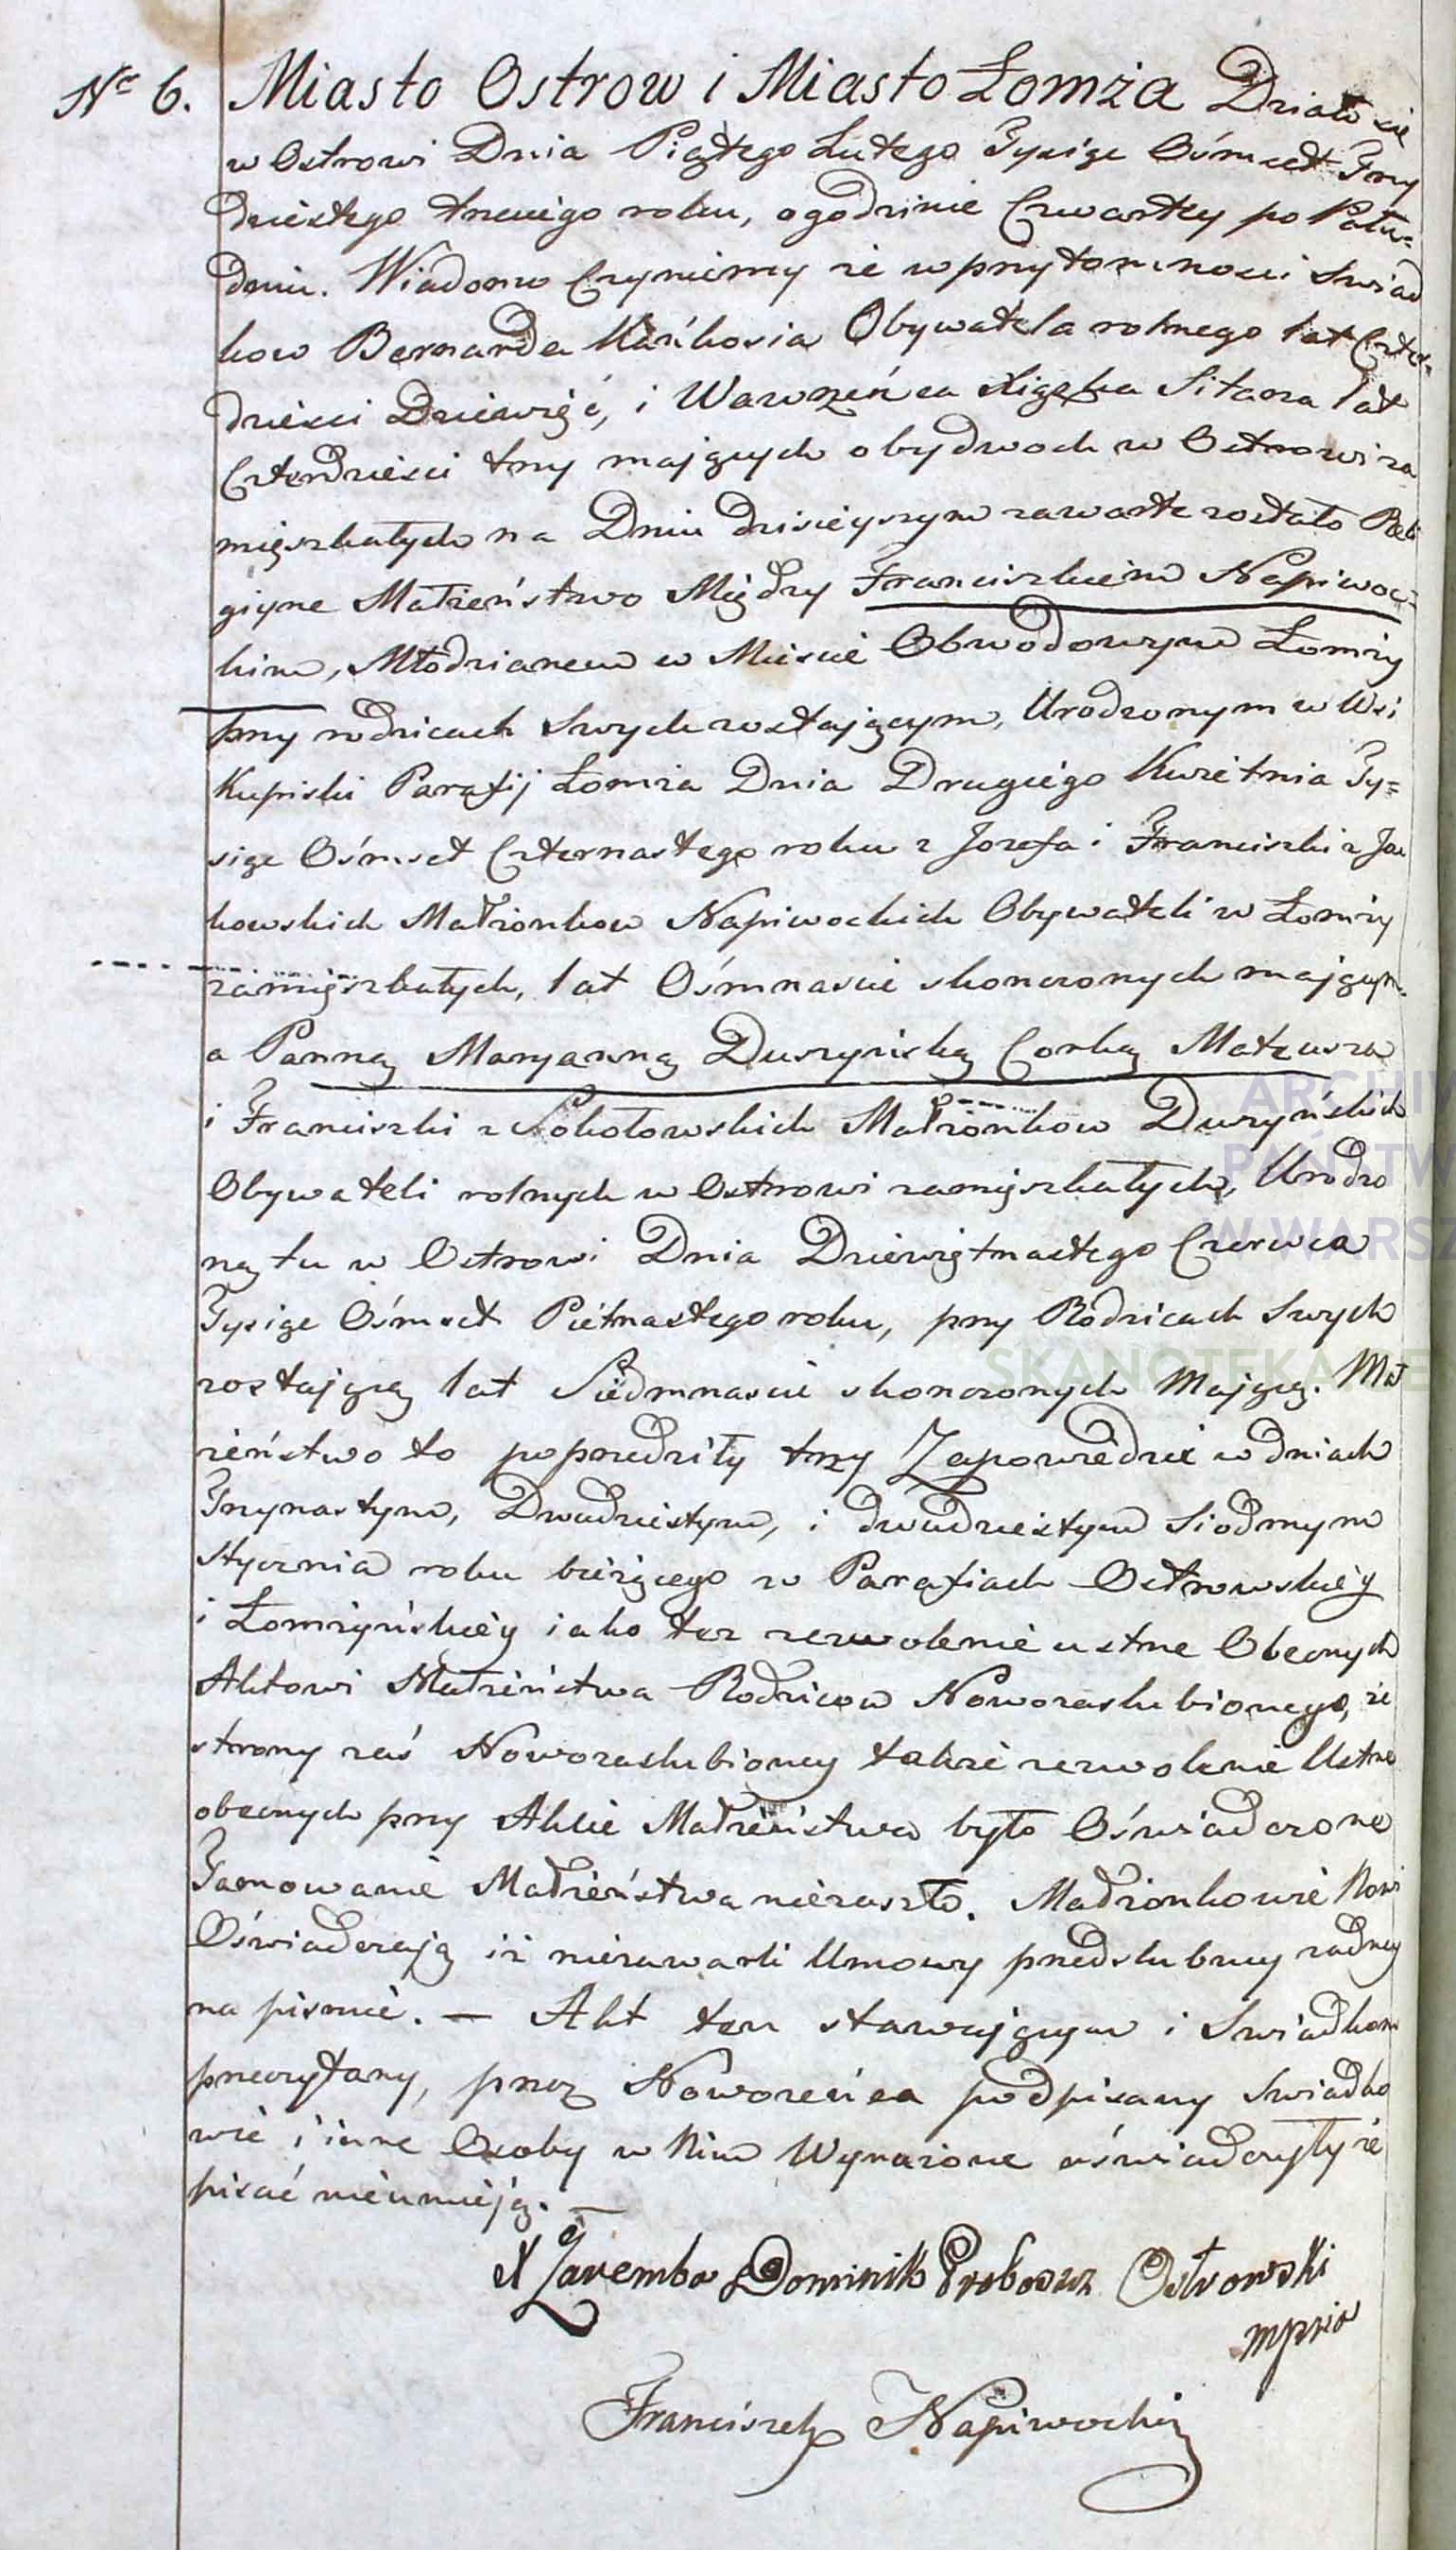 Nr 6. Miasto Ostrow i Miasto Łomża Działo się
w Ostrowi Dnia Piątego Lutego Tysiąc Ośmset Trzy
dziestego trzeciego roku, o godzinie Czwartey po Połu=
dniu. Wiadomo Czyniemy że w przytomności Swiad
kow Bernarda Kańkosia Obywatela rolnego lat Czter=
dzieści Dziewięć, i Wawrzeńca Sitarza lat
Czterdzieści trzy mających obydwoch w Ostrowi za
mięszkałych na Dniu dzisieyszym zawarte zostało Reli
giyne Małżeństwo Między Franciszkiem Napiwoc=
kim, Młodzianem w Mieście Obwodowym Łomży
przy rodzicach Swych zostającym, Urodzonym w Wsi
Kupiski Parafij Łomża Dnia Drugiego Kwietnia Ty=
siąc Ośmset Czternastego roku z Jozefa i Franciszki z Ja
kowskich Małżonkow Napiwockich Obywateli w Łomży
zamięszkałych, lat Ośmnaście skonczonych mającym=
a Panną Maryanną Duszyńską Corką Mateusza
i Franciszki z Sokołowskich Małżonkow Duszyńskich
Obywateli rolnych w Ostrowi zamięszkałych, Urodzo
ną tu w Ostrowi Dnia Dziewiętnastego Czerwca
Tysiąc Ośmset Piętnastego roku, przy Rodzicach Swych
zostającą lat Siedmnaście skonczonych Mającą. Mał
żeństwo to poprzedziły trzy Zapowiedzie w dniach
Trzynastym, Dwudziestym, i dwudziestym Siodmym
Stycznia roku bieżącego w Parafiach Ostrowskiéy
i Łomżyńskiéy iako też zezwolenie ustne Obecnych
Aktowi Małżeństwa Rodzicow Nowozaslubionego, ze
strony zaś Nowozaslubioney także zezwolenie Ustne
obecnych przy Akcie Małżeństwa było Oświadczone
Tamowanie Małżeństwa niezaszło. Małżonkowie Nowi
Oświadczają iż niezawarli Umowy przedslubney żadney
na pismie. — Akt ten stawającym i Swiadkom
przeczytany, przez Nowożeńca podpisany Swiadko
wie i inne Osoby w Nim Wyrażone oświadczyły że
pisać nieumieją. —
X Zaremba Dominik Proboszcz Ostrowski
mpria
Franciszek Napiwocki
ARCHIW
PAŃSTW
W WARSZ
SKANOTEKA